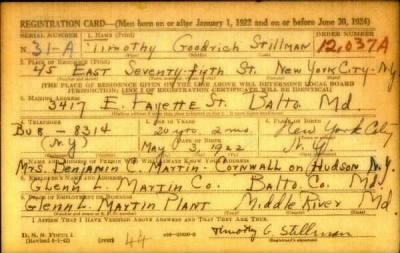 REGISTRATION CARD—(Men born on or after January 1, 1922 and on or before June 30, 1924)
SERIAL NUMBER 1. NAME (Print) ORDER NUMBER
N 31-A Timothy Goodrich Stillman 12,037A
2. PLACE OF RESIDENCE (Print)
45 East Seventy-fifth St. New York City - N.Y.
[THE PLACE OF RESIDENCE GIVEN ON THE LINE ABOVE WILL DETERMINE LOCAL BOARD
JURISDICTION; LINE 2 OF REGISTRATION CERTIFICATE WILL BE IDENTICAL]
3. MAILING ADDRESS
3417 E. Fayette St. Balto. Md.
4. TELEPHONE 5. AGE IN YEARS 6. PLACE OF BIRTH
BU8-8314 20 yrs. 2 mos. New York City
DATE OF BIRTH
(N.Y.) May 3, 1922 N.Y.
7. NAME AND ADDRESS OF PERSON WHO WILL ALWAYS KNOW YOUR ADDRESS
Mrs. Benjamin C. Martin - Cornwall on Hudson N.Y.
8. EMPLOYER'S NAME AND ADDRESS
Glenn L. Martin Co. Balto. Co. Md.
9. PLACE OF EMPLOYMENT OR BUSINESS
Glenn L. Martin Plant Middle River Md.
I AFFIRM THAT I HAVE VERIFIED ABOVE ANSWERS AND THAT THEY ARE TRUE.
D. S. S. Form 1
44 Timothy G. Stillman